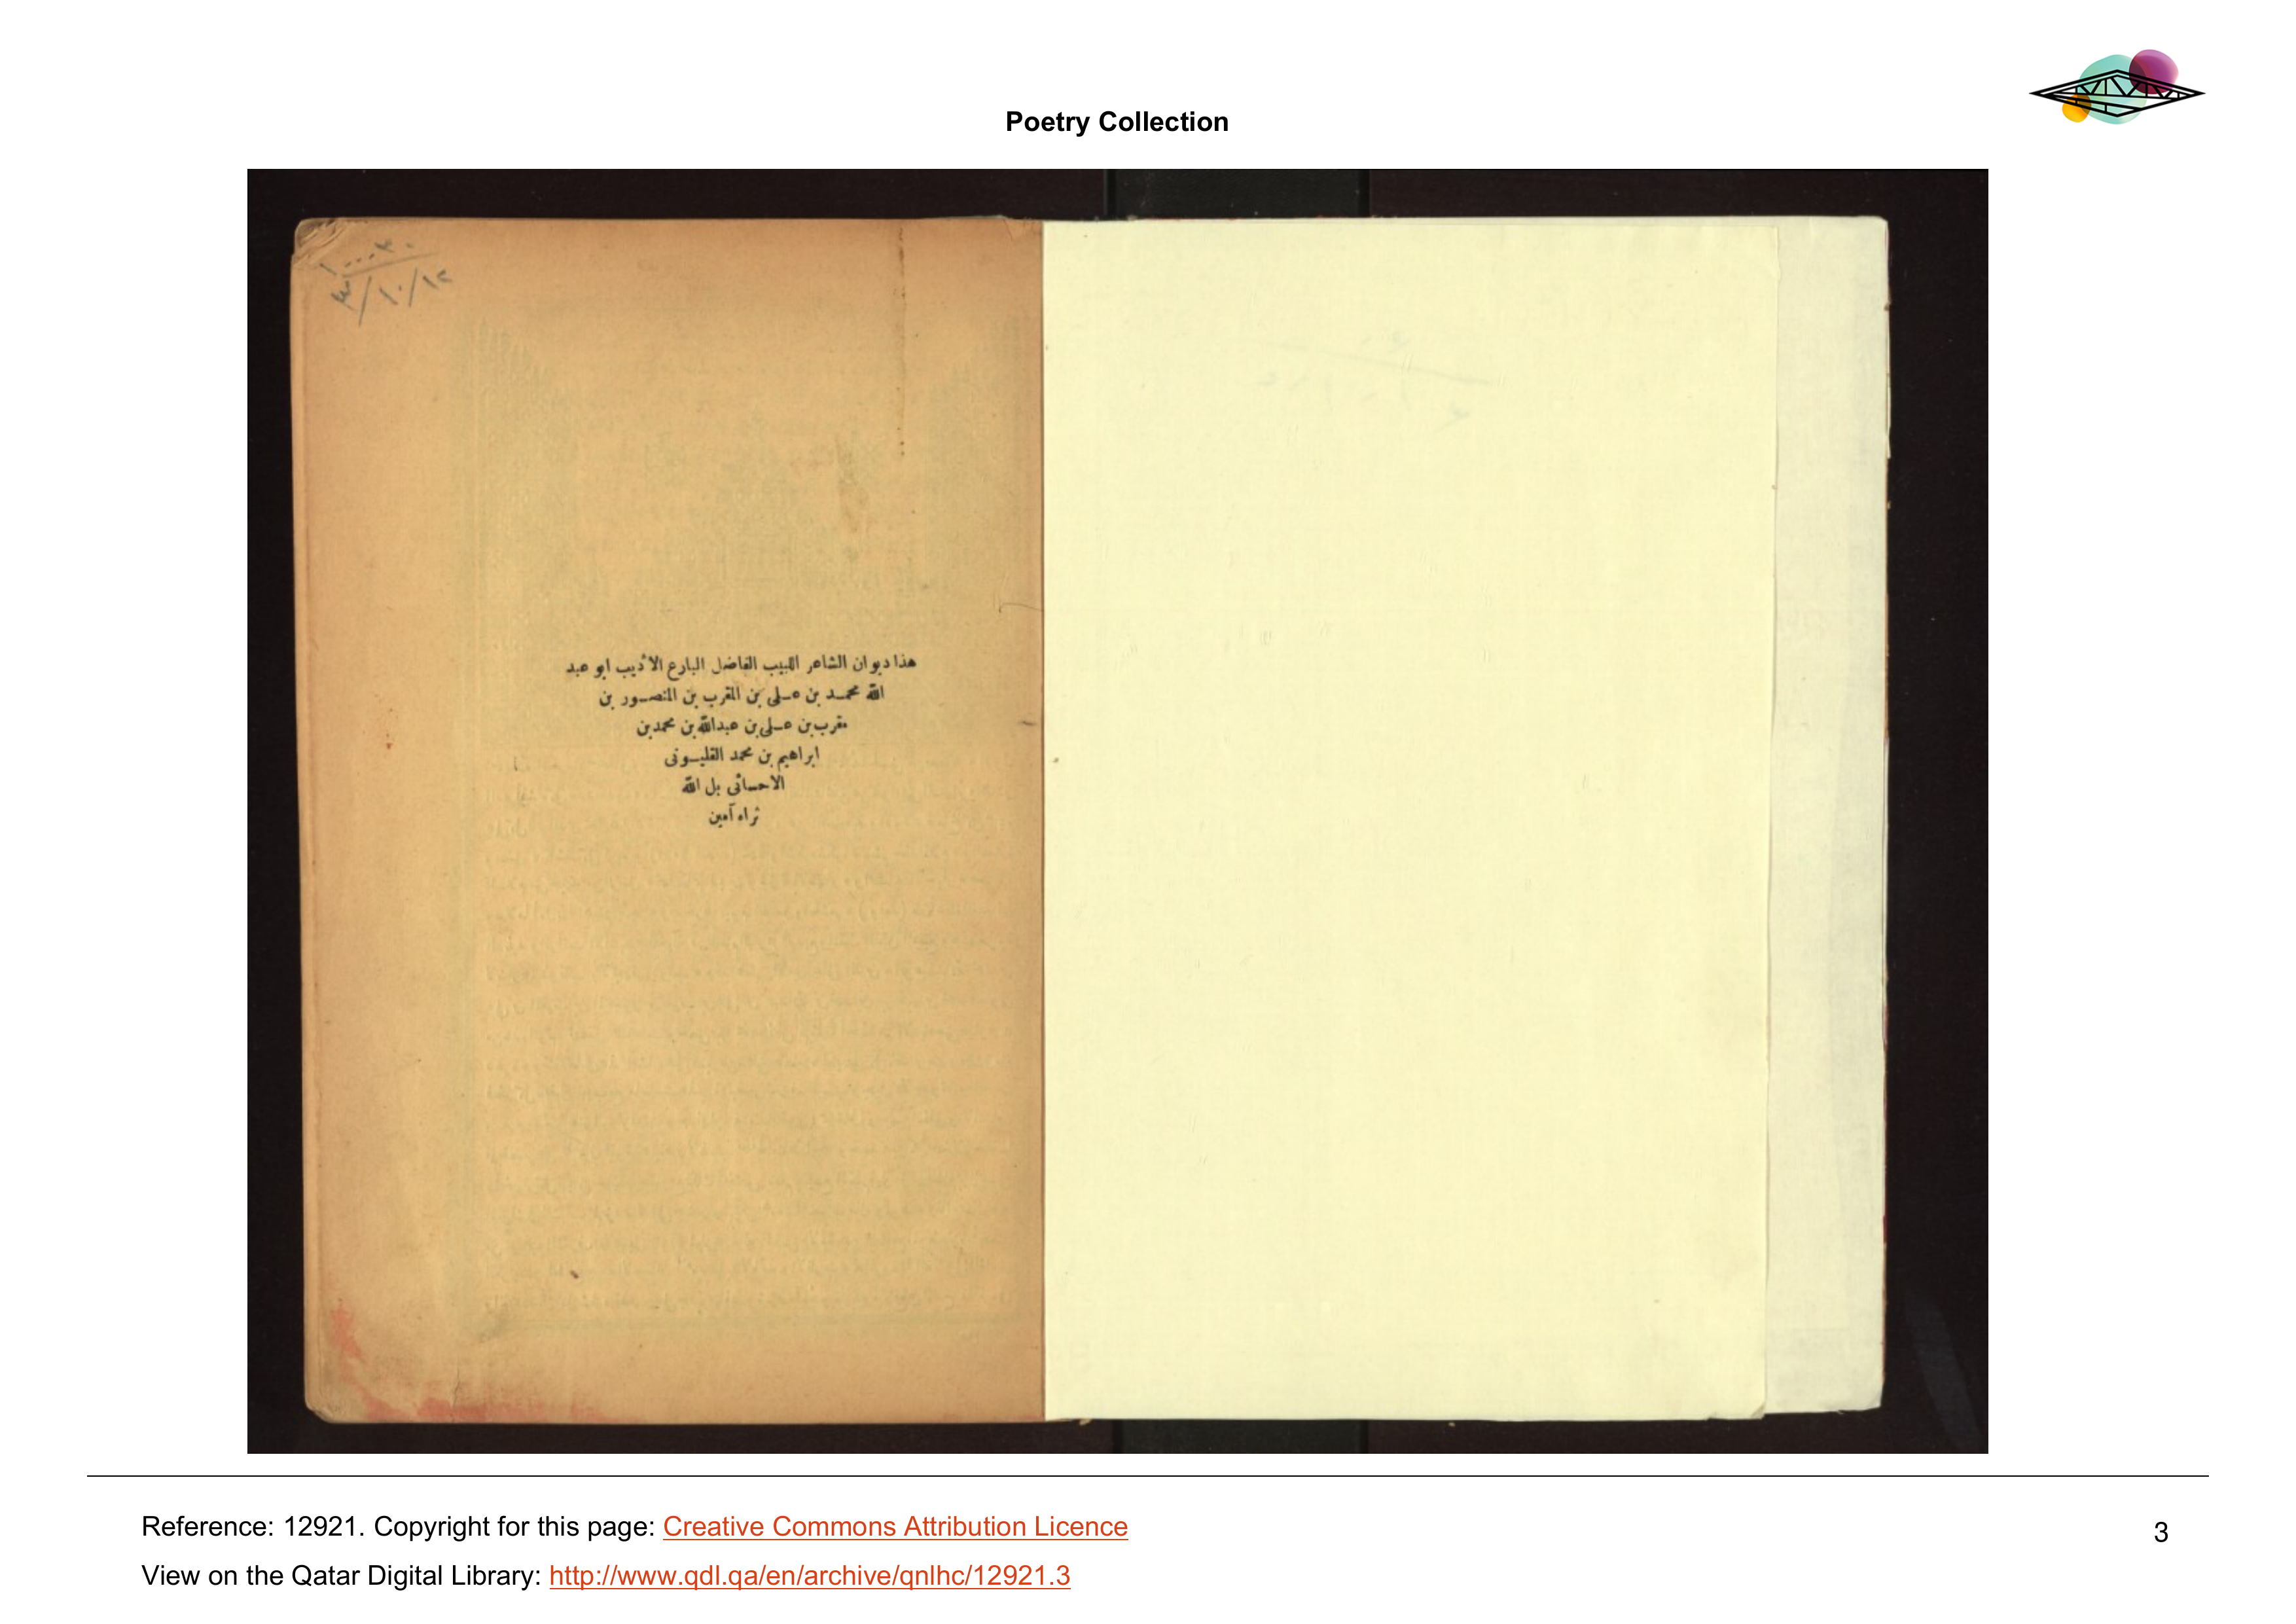 Poetry Collection
هذا ديوان الشاعر اللبيب الفاضل البارع الأديب ابو عبد
الله محمد بن على بن المقرب بن المنصور بن
مقرب بن على بن عبدالله بن محمد بن
ابراهيم بن محمد القليونى
الاحسائى بل الله
ثراه آمين
Reference: 12921. Copyright for this page: Creative Commons Attribution Licence
View on the Qatar Digital Library: http://www.qdl.qa/en/archive/qnlhc/12921.3
3